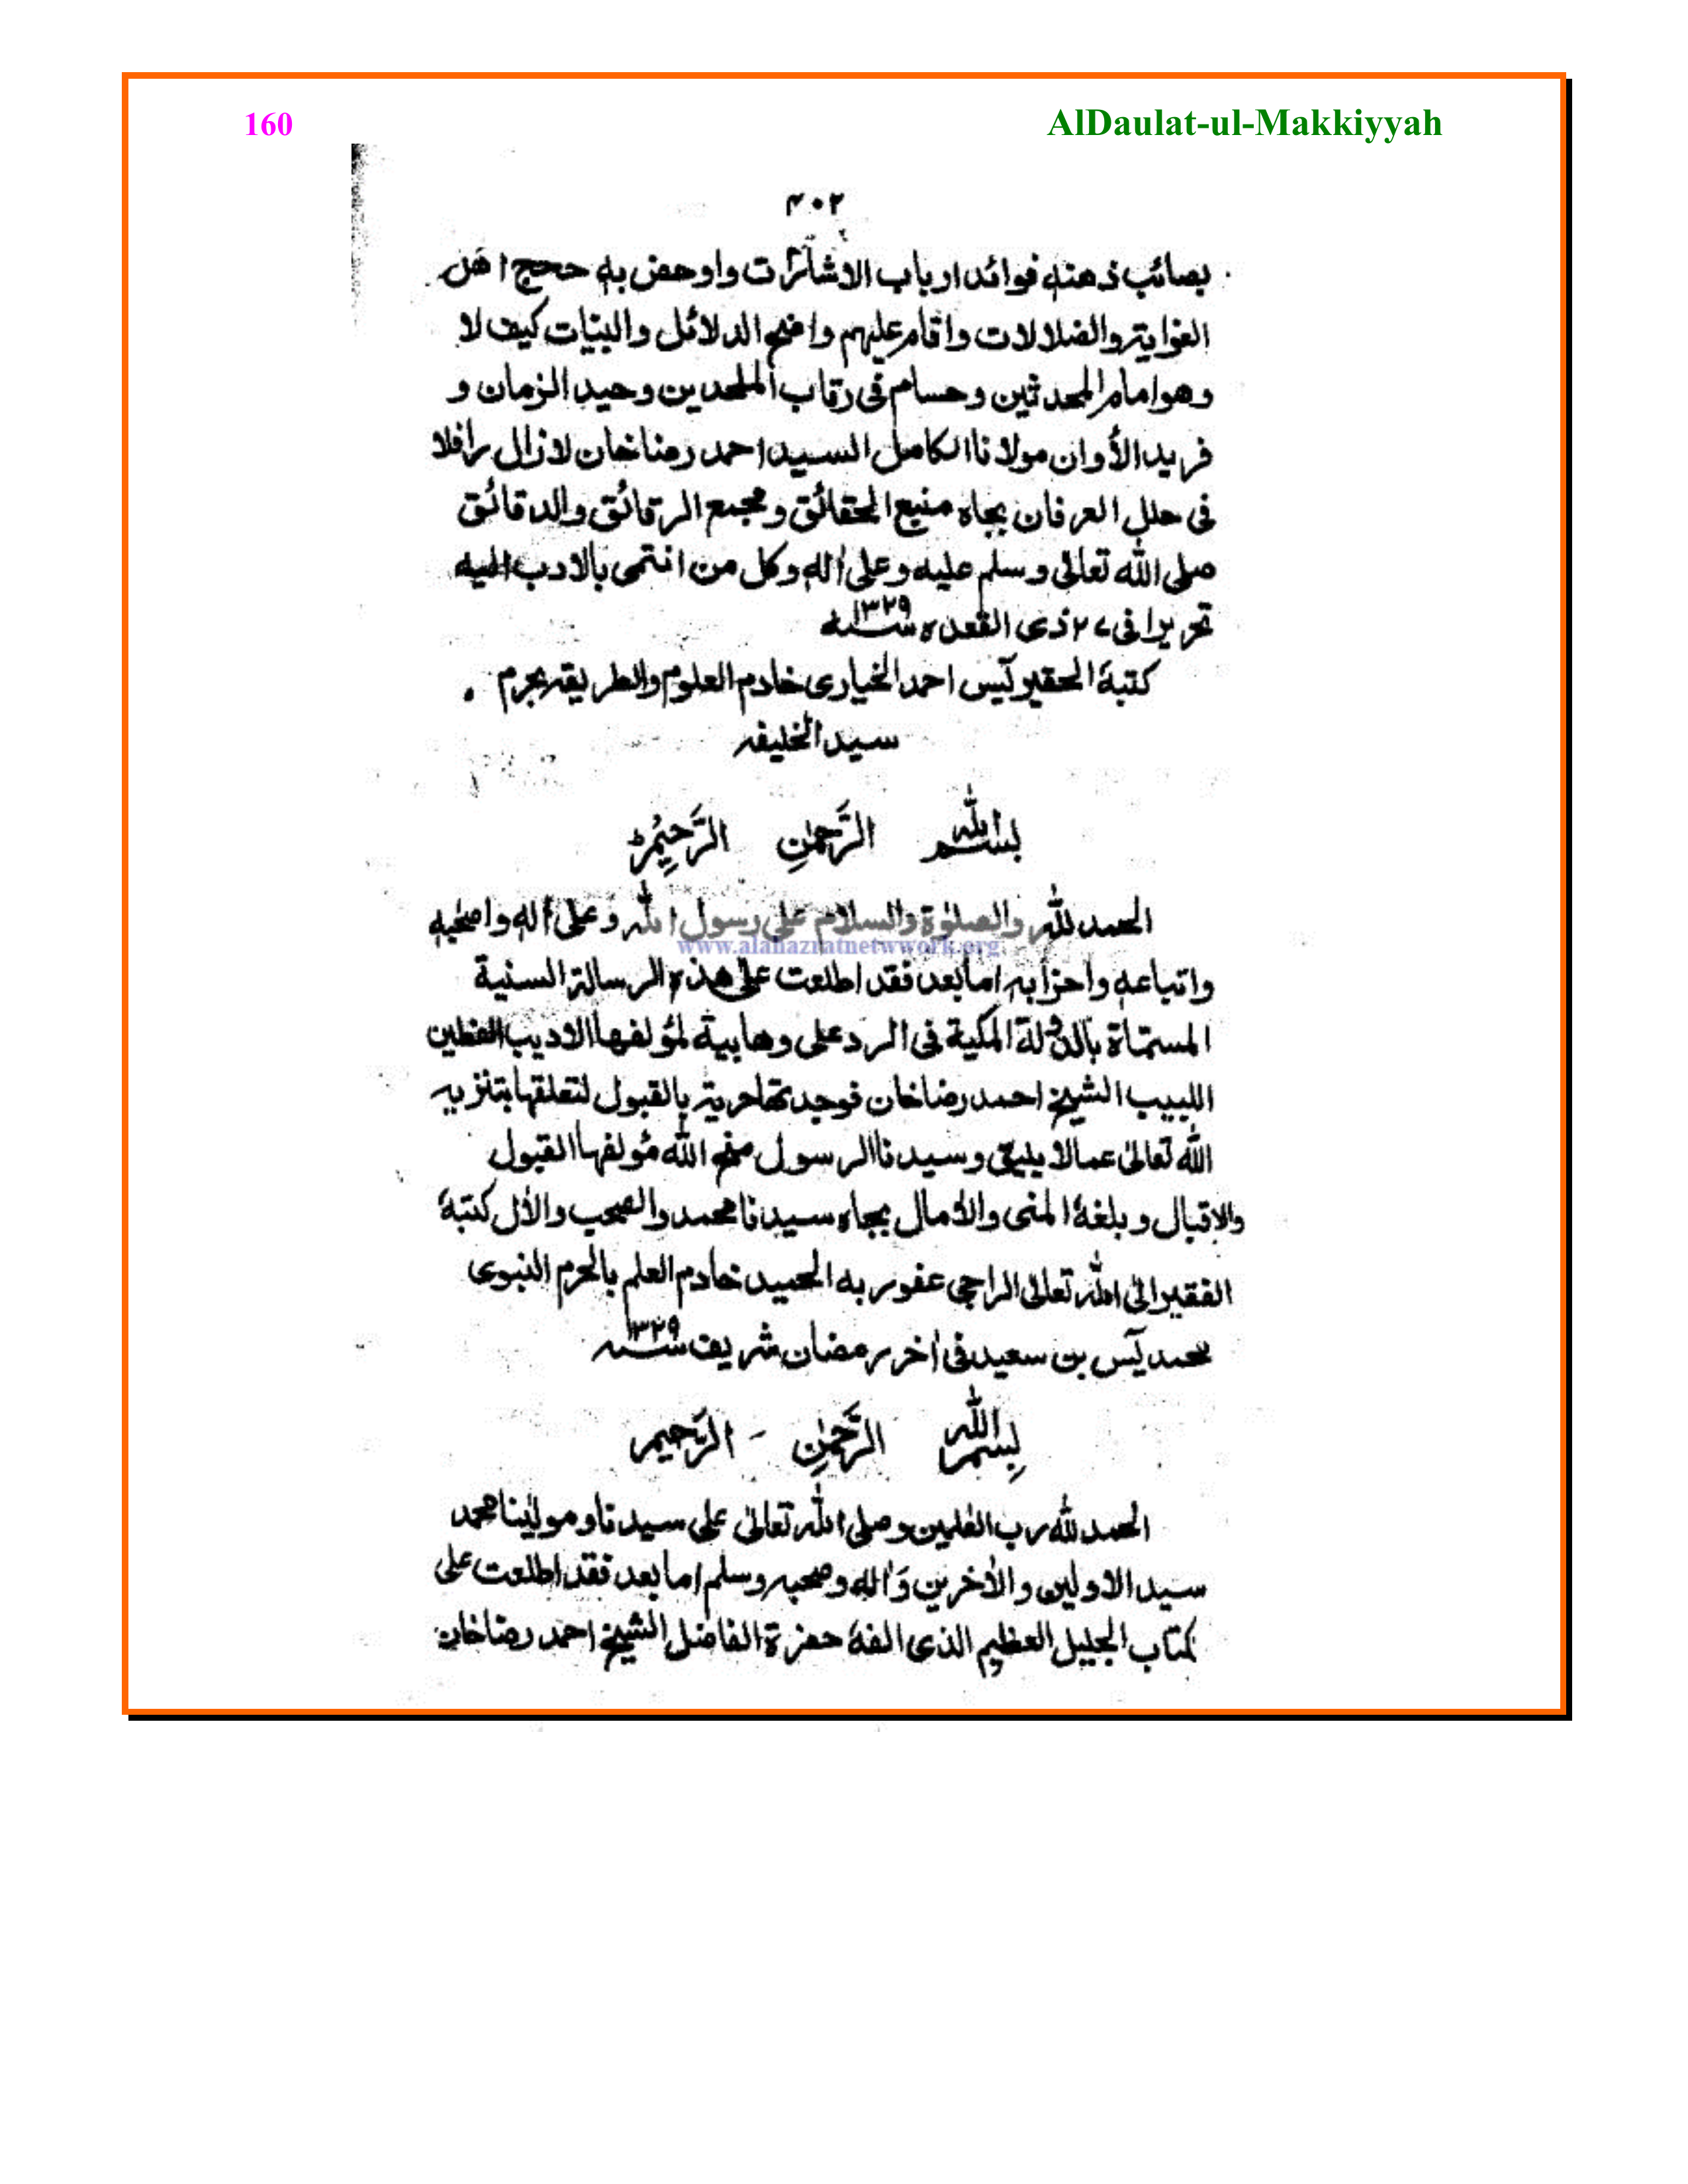 160
AlDaulat-ul-Makkiyyah
۴۰۲
بصائب ذهنه فوائد ارباب الاشارات واوحض به حجج اهل
الغوایة والضلالات واقام علیهم واضح الدلائل والبینات کیف لا
وهو امام المحدثین وحسام فی رقاب الملحدین وحید الزمان و
فرید الأوان مولانا الکامل السید احمد رضاخان لازال رافلا
فی حلل العرفان بجاه منبع الحقائق ومجمع الرقائق والدقائق
صلی الله تعالیٰ وسلم علیه وعلیٰ اٰله وکل من انتمی بالادب الیه
تحریرا فی ۲۷ ذی القعدہ ۱۳۲۹ سنه
کتبهٗ الحقیر یٰس احمد الخیاری خادم العلوم والطریقة بحرم
سید الخلیفه
بسم الله الرَّحمٰنِ الرَّحِیْمِ
الحمد لله والصلوٰة والسلام علی رسول الله وعلیٰ اٰله واصحٰبه
واتباعه واحزابه امابعد فقد اطلعت علیٰ هذه الرسالة السنیة
المسمّاة بالدولة المکیة فی الرد علی وهابیة لمؤلفها الادیب الفطین
اللبیب الشیخ احمد رضاخان فوجدتها حریة بالقبول لتعلقها بتنزیه
الله تعالیٰ عمالا یلیق وسیدنا الرسول منح الله مؤلفها القبول
والاقبال وبلغهٗ المنی والاٰمال بجاه سیدنا محمد والصحب والأل کتبهٗ
الفقیر الیٰ الله تعالیٰ الراجی عفو ربه الحمید خادم العلم بالحرم النبوی
محمد یٰس بن سعید فی اٰخر رمضان شریف ۱۳۲۹ سنه
بِسمِ الله الرَّحمٰنِ - الرَّحیم
الحمد لله رب العٰلمین وصلی الله تعالیٰ علی سیدنا ومولٰینا محمد
سید الاولین والاٰخرین وَاٰله وصحبه وسلم امابعد فقد اطلعت علی
کتاب الجلیل العظیم الذی الفهٗ حضرة الفاضل الشیخ احمد رضاخان
www.alahazratnetwork.org